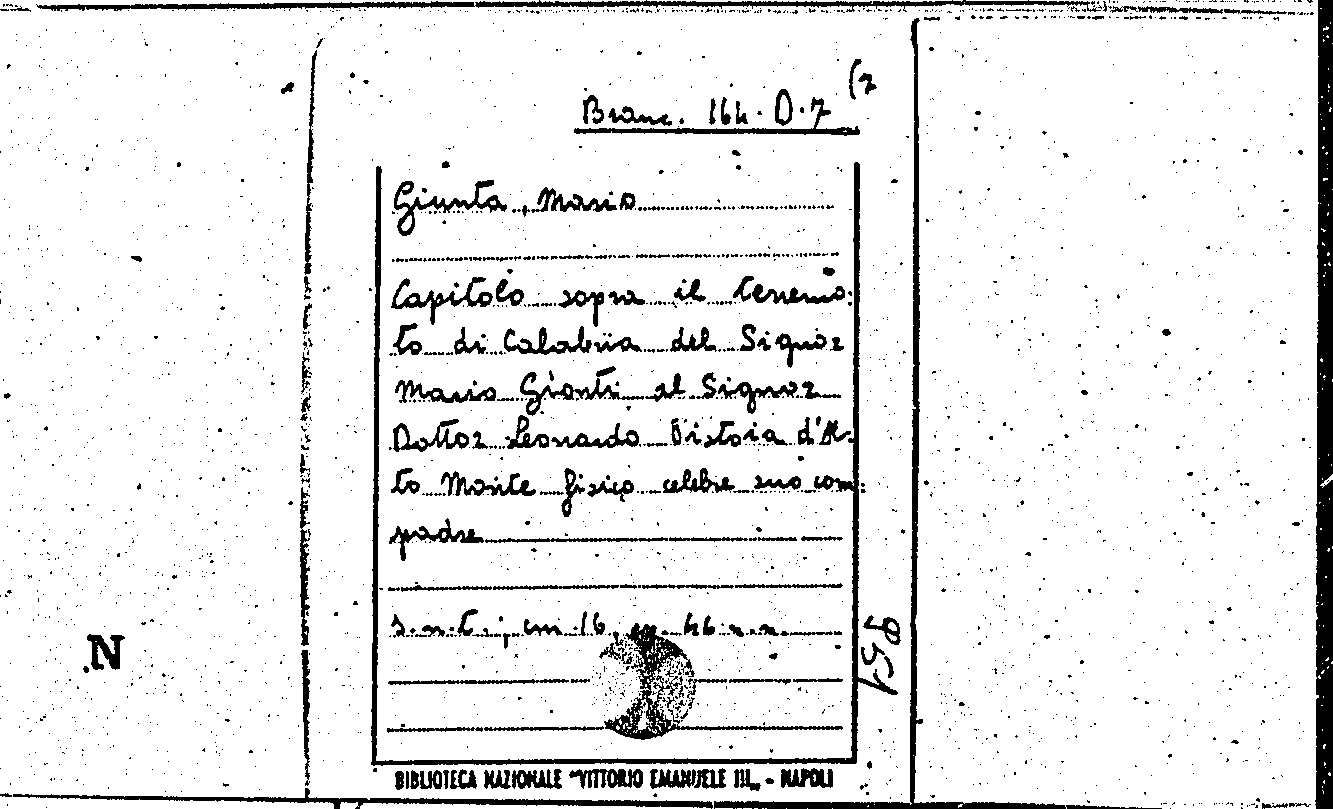 Branc. 164. D. 7 (2
Giunta, Mario
Capitolo sopra il terremo:
to di Calabria del Signor
Mario Gionti al Signor
Dottor Leonardo Pistoia d'Al:
to Monte fisico celebre suo com:
padre
s.n.t.; cm 16, cc. 46 n.n.
N
BIBLIOTECA NAZIONALE "VITTORIO EMANUELE III„ - NAPOLI